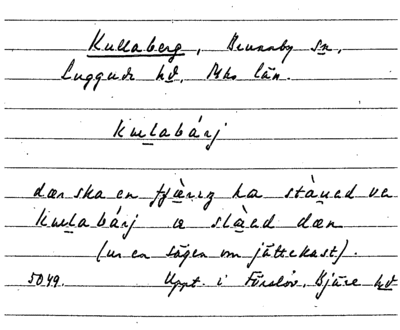 Kullaberg, Brunnby sn,
Luggude hd, Mhs län.
kɯlabárj
dær ska en fjæ̀riz ha stàued ve
kɯlabárj o slàed dæn
(ur en sägen om jättekast).
5049. Uppt. i Förslöv, Bjäre hd